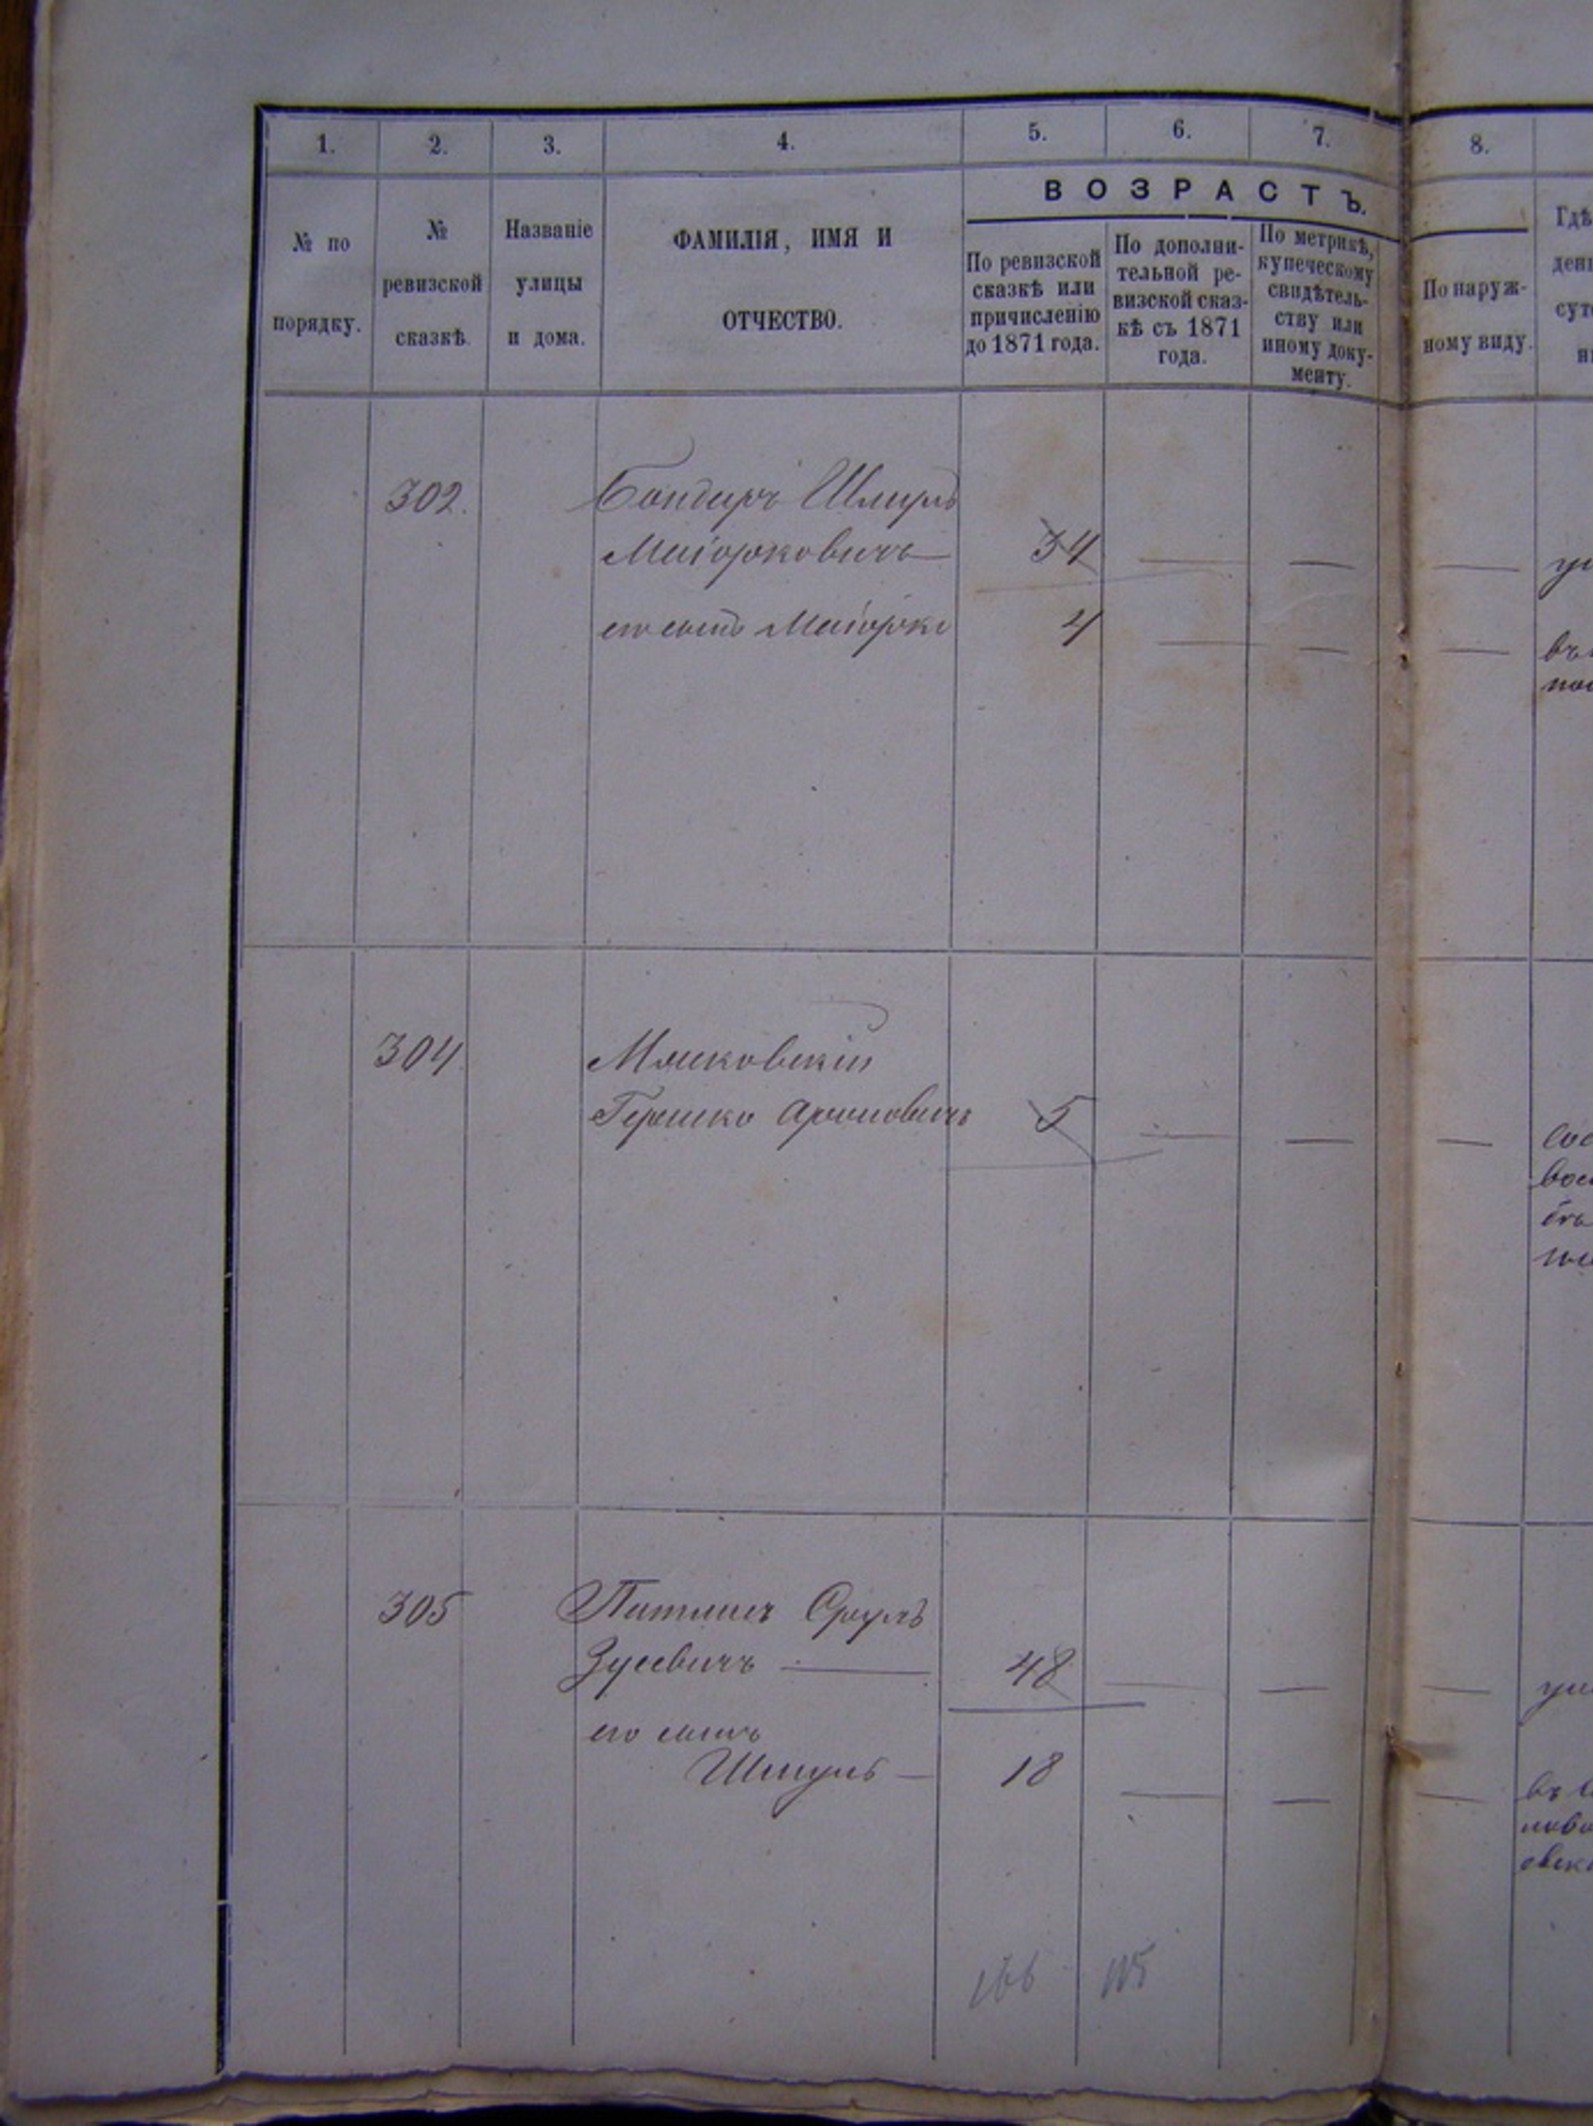 1. 2. 3. 4. 5. 6. 7. 8.
ВОЗРАСТЪ.
№ по порядку.
№ ревизской сказкѣ.
Названіе улицы и дома.
ФАМИЛІЯ, ИМЯ И ОТЧЕСТВО.
По ревизской сказкѣ или причисленію до 1871 года.
По дополни-тельной ре-визской сказ-кѣ съ 1871 года.
По метрикѣ, купеческому свидѣтель-ству или иному доку-менту.
По наруж-ному виду.
302. Бондарь Шмуль
Маіорковичъ — 34 — — —
его сынъ Маіорко 4 — — —
304
Гершко Ароновичъ 5 — — —
305 Сруль
Зусевичъ — 48 — — —
его сынъ
Шмуль — 18 — — —